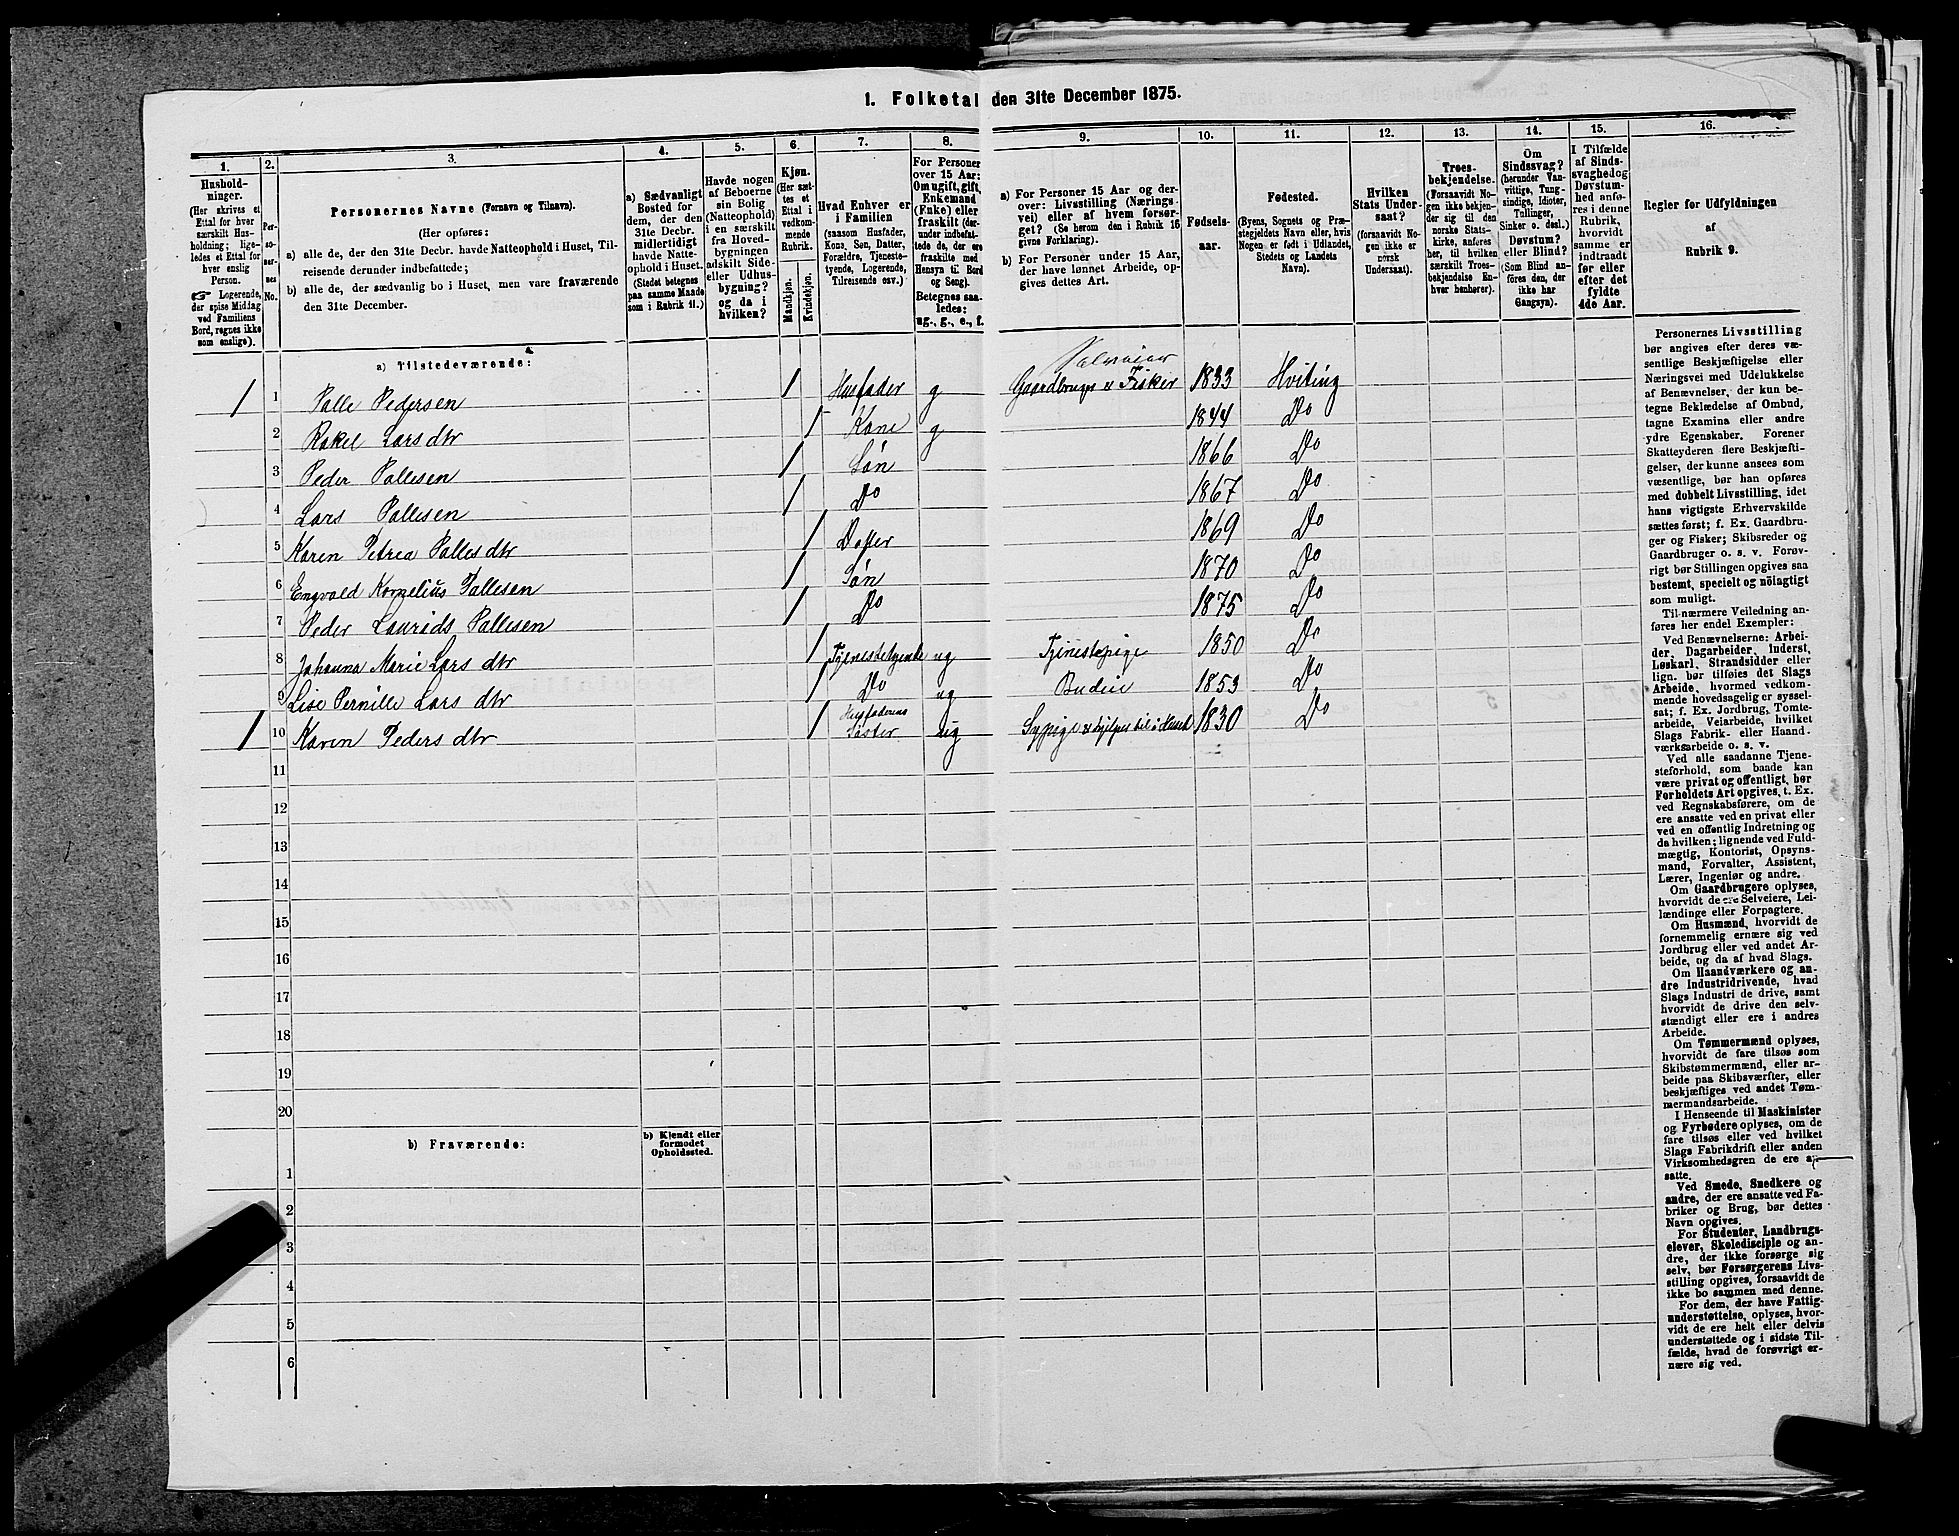 1. Folketal den 31te December 1875.
1.
2.
3.
4.
5.
6.
7.
8.
9.
10.
11.
12.
13.
14.
15.
16.
Hushold-
ninger.
(Her skrives et
Ettal for hver
særskilt Hus-
holdning; lige-
ledes et Ettal for
hver enslig
Person.
☞ Logerende,
der spise Middag
ved Familiens
Bord, regnes ikke
som enslige).
Per-
so-
ner-
nes
No.
Personernes Navne (Fornavn og Tilnavn).
(Her opføres:
a) alle de, der den 31te Decbr. havde Natteophold i Huset, Til-
reisende derunder indbefattede;
b) alle de, der sædvanlig bo i Huset, men vare fraværende
den 31te December.
a) Sædvanligt
Bosted for
dem, der den
31te Decbr.
midlertidigt
havde Natte-
ophold i Huset.
(Stedet betegnes
paa samme Maade
som i Rubrik 11.)
Havde nogen
af Beboerne
sin Bolig
(Natteophold)
i en særskilt
fra Hoved-
bygningen
adskilt Side-
eller Udhus-
bygning?
og da i
hvilken?
Kjøn.
(Her sæt-
tes et
Ettal i
vedkom-
mende
Rubrik.
Mandkjøn.
Kvindekjøn.
Hvad Enhver er
i Familien
(saasom Husfader,
Kone, Søn, Datter,
Forældre, Tjeneste-
tyende, Logerende,
Tilreisende osv.)
For Personer
over 15 Aar:
Om ugift, gift,
Enkemand
(Enke) eller
fraskilt (der-
under indbefat-
tede de, der ere
fraskilte med
Hensyn til Bord
og Seng).
Betegnes saa-
ledes:
ug., g., e., f.
a) For Personer 15 Aar og der-
over: Livsstilling (Nærings-
vei) eller af hvem forsør-
get? (Se herom den i Rubrik 16
givne Forklaring).
b) For Personer under 15 Aar,
der have lønnet Arbeide, op-
gives dettes Art.
Fødsels-
aar.
Fødested.
(Byens, Sognets og Præ-
stegjeldets Navn eller, hvis
Nogen er født i Udlandet,
Stedets og Landets
Navn).
Hvilken
Stats Under-
saat?
(forsaavidt No-
gen ikke er
norsk
Undersaat).
Troes-
bekjendelse.
(Forsaavidt No-
gen ikke bekjen-
der sig til den
norske Stats-
kirke, anføres
her, til hvilken
særskilt Troes-
bekjendelse En-
hver henhører).
Om
Sindssvag?
(herunder Van-
vittige, Tung-
sindige, Idioter,
Tullinger,
Sinker o. desl.)
Døvstum?
eller Blind?
(Som Blind an-
føres den, der
ikke har
Gangsyn).
I Tilfælde
af Sinds-
svaghed og
Døvstum-
hed anfø-
res i denne
Rubrik,
hvorvidt
samme er
indtraadt
før eller
efter det
fyldte
4de Aar.
Regler for Udfyldningen
af
Rubrik 9.
a) Tilstedeværende:
1 1 Palle Pedersen 1 Husfader g Gaardbruger & Fisker 1833 Hviting
2 Rakel Lars dtr 1 Kone g 1844 Do
3 Peder Pallesen 1 Søn 1866 Do
4 Lars Pallesen 1 Do 1867 Do
5 Karen Petrea Palles dtr 1 Datter 1869 Do
6 Engvald Kornelius Pallesen 1 Søn 1870 Do
7 Peder Laurids Pallesen 1 Do 1875 Do
8 Johanna Marie Lars dtr 1 Tjenestetyende ug Tjenestepige 1850 Do
9 Lise Pernille Lars dtr 1 Do ug Budeie 1853 Do
1 10 Karen Peders dtr 1 Husfaderens Søster ug Sypige & hjelper til i Huset 1830 Do
11
12
13
14
15
16
17
18
19
20
b) Fraværende:
b) Kjendt eller
formodet
Opholdssted.
1
2
3
4
5
6
Personernes Livsstilling
bør angives efter deres væ-
sentlige Beskjæftigelse eller
Næringsvei med Udelukkelse
af Benævnelser, der kun be-
tegne Beklædelse af Ombud,
tagne Examina eller andre
ydre Egenskaber. Forener
Skatteyderen flere Beskjæfti-
gelser, der kunne ansees som
væsentlige, bør han opføres
med dobbelt Livsstilling, idet
hans vigtigste Erhvervskilde
sættes først; f. Ex. Gaardbru-
ger og Fisker; Skibsreder og
Gaardbruger o. s. v. Forøv-
rigt bør Stillingen opgives saa
bestemt, specielt og nöiagtigt
som muligt.
Til nærmere Veiledning an-
føres her endel Exempler:
Ved Benævnelserne: Arbei-
der, Dagarbeider, Inderst,
Løskarl, Strandsidder eller
lign. bør tilføies det Slags
Arbeide, hvormed vedkom-
mende hovedsagelig er syssel-
sat; f. Ex. Jordbrug, Tomte-
arbeide, Veiarbeide, hvilket
Slags Fabrik- eller Haand-
værksarbeide o. s. v.
Ved alle saadanne Tjene-
steforhold, som baade kan
være privat og offentligt, bør
Forholdets Art opgives, t. Ex.
ved Regnskabsførere, om de
ere ansatte ved en privat eller
ved en offentlig Indretning og
da hvilken; lignende ved Fuld-
mægtig, Kontorist, Opsyns-
mand, Forvalter, Assistent,
Lærer, Ingeniør og andre.
Om Gaardbrugere oplyses,
hvorvidt de ere Selveiere, Lei-
lændinge eller Forpagtere.
Om Husmænd, hvorvidt de
fornemmelig ernære sig ved
Jordbrug eller ved andet Ar-
beide, og da af hvad Slags.
Om Haandværkere og an-
dre Industridrivende, hvad
Slags Industri de drive, samt
hvorvidt de drive den selv-
stændigt eller ere i andres
Arbeide.
Om Tømmermænd oplyses,
hvorvidt de fare tilsøs som
Skibstømmermænd, eller ar-
beide paa Skibsværfter, eller
beskjæftiges ved andet Tøm-
mermandsarbeide.
I Henseende til Maskinister
og Fyrbødere oplyses, om de
fare tilsøs eller ved hvilket
Slags Fabrikdrift eller anden
Virksomhedsgren de ere an-
satte.
Ved Smede, Snedkere og
andre, der ere ansatte ved Fa-
briker og Brug, bør dettes
Navn opgives.
For Studenter, Landbrugs-
elever, Skoledisciple og an-
dre, der ikke forsørge sig
selv, bør Forsørgerens Livs-
stilling opgives, forsaavidt de
ikke bo sammen med denne.
For dem, der have Fattig-
understøttelse, oplyses, hvor-
vidt de ere helt eller delvis
understøttede og i sidste Til-
fælde, hvad de forøvrigt er-
nære sig ved.